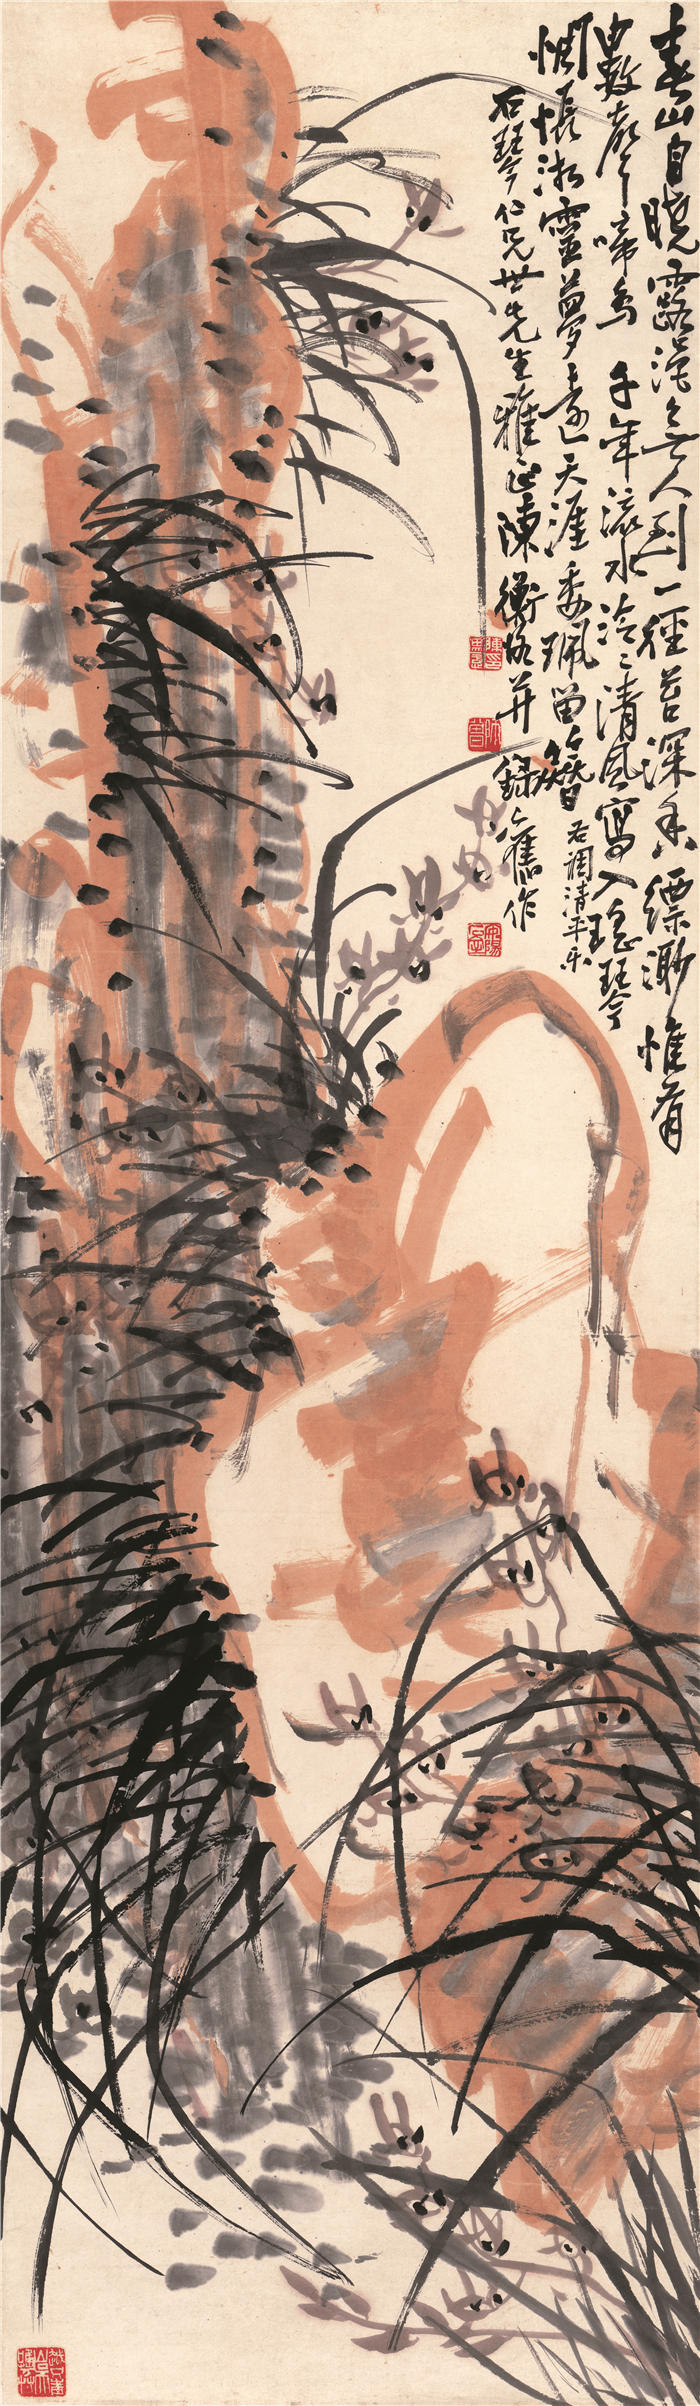 春山自曉露浥無人到一徑苔深香縹渺惟有
數聲啼鳥千年流水泠泠清風寫入瑤琴
惆悵湘靈夢遠天涯委珮留簪 右調清平樂
石琴仁兄世先生雅正陳衡恪并錄舊作